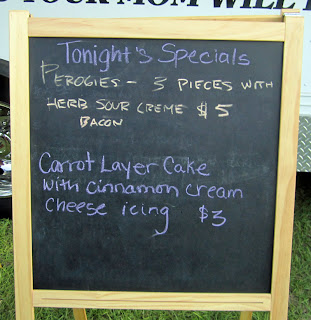 YOUR MOM WILL
Tonight's Specials
PEROGIES - 3 PIECES WITH
HERB SOUR CREME $5
BACON
Carrot Layer Cake
with cinnamon cream
cheese icing $3